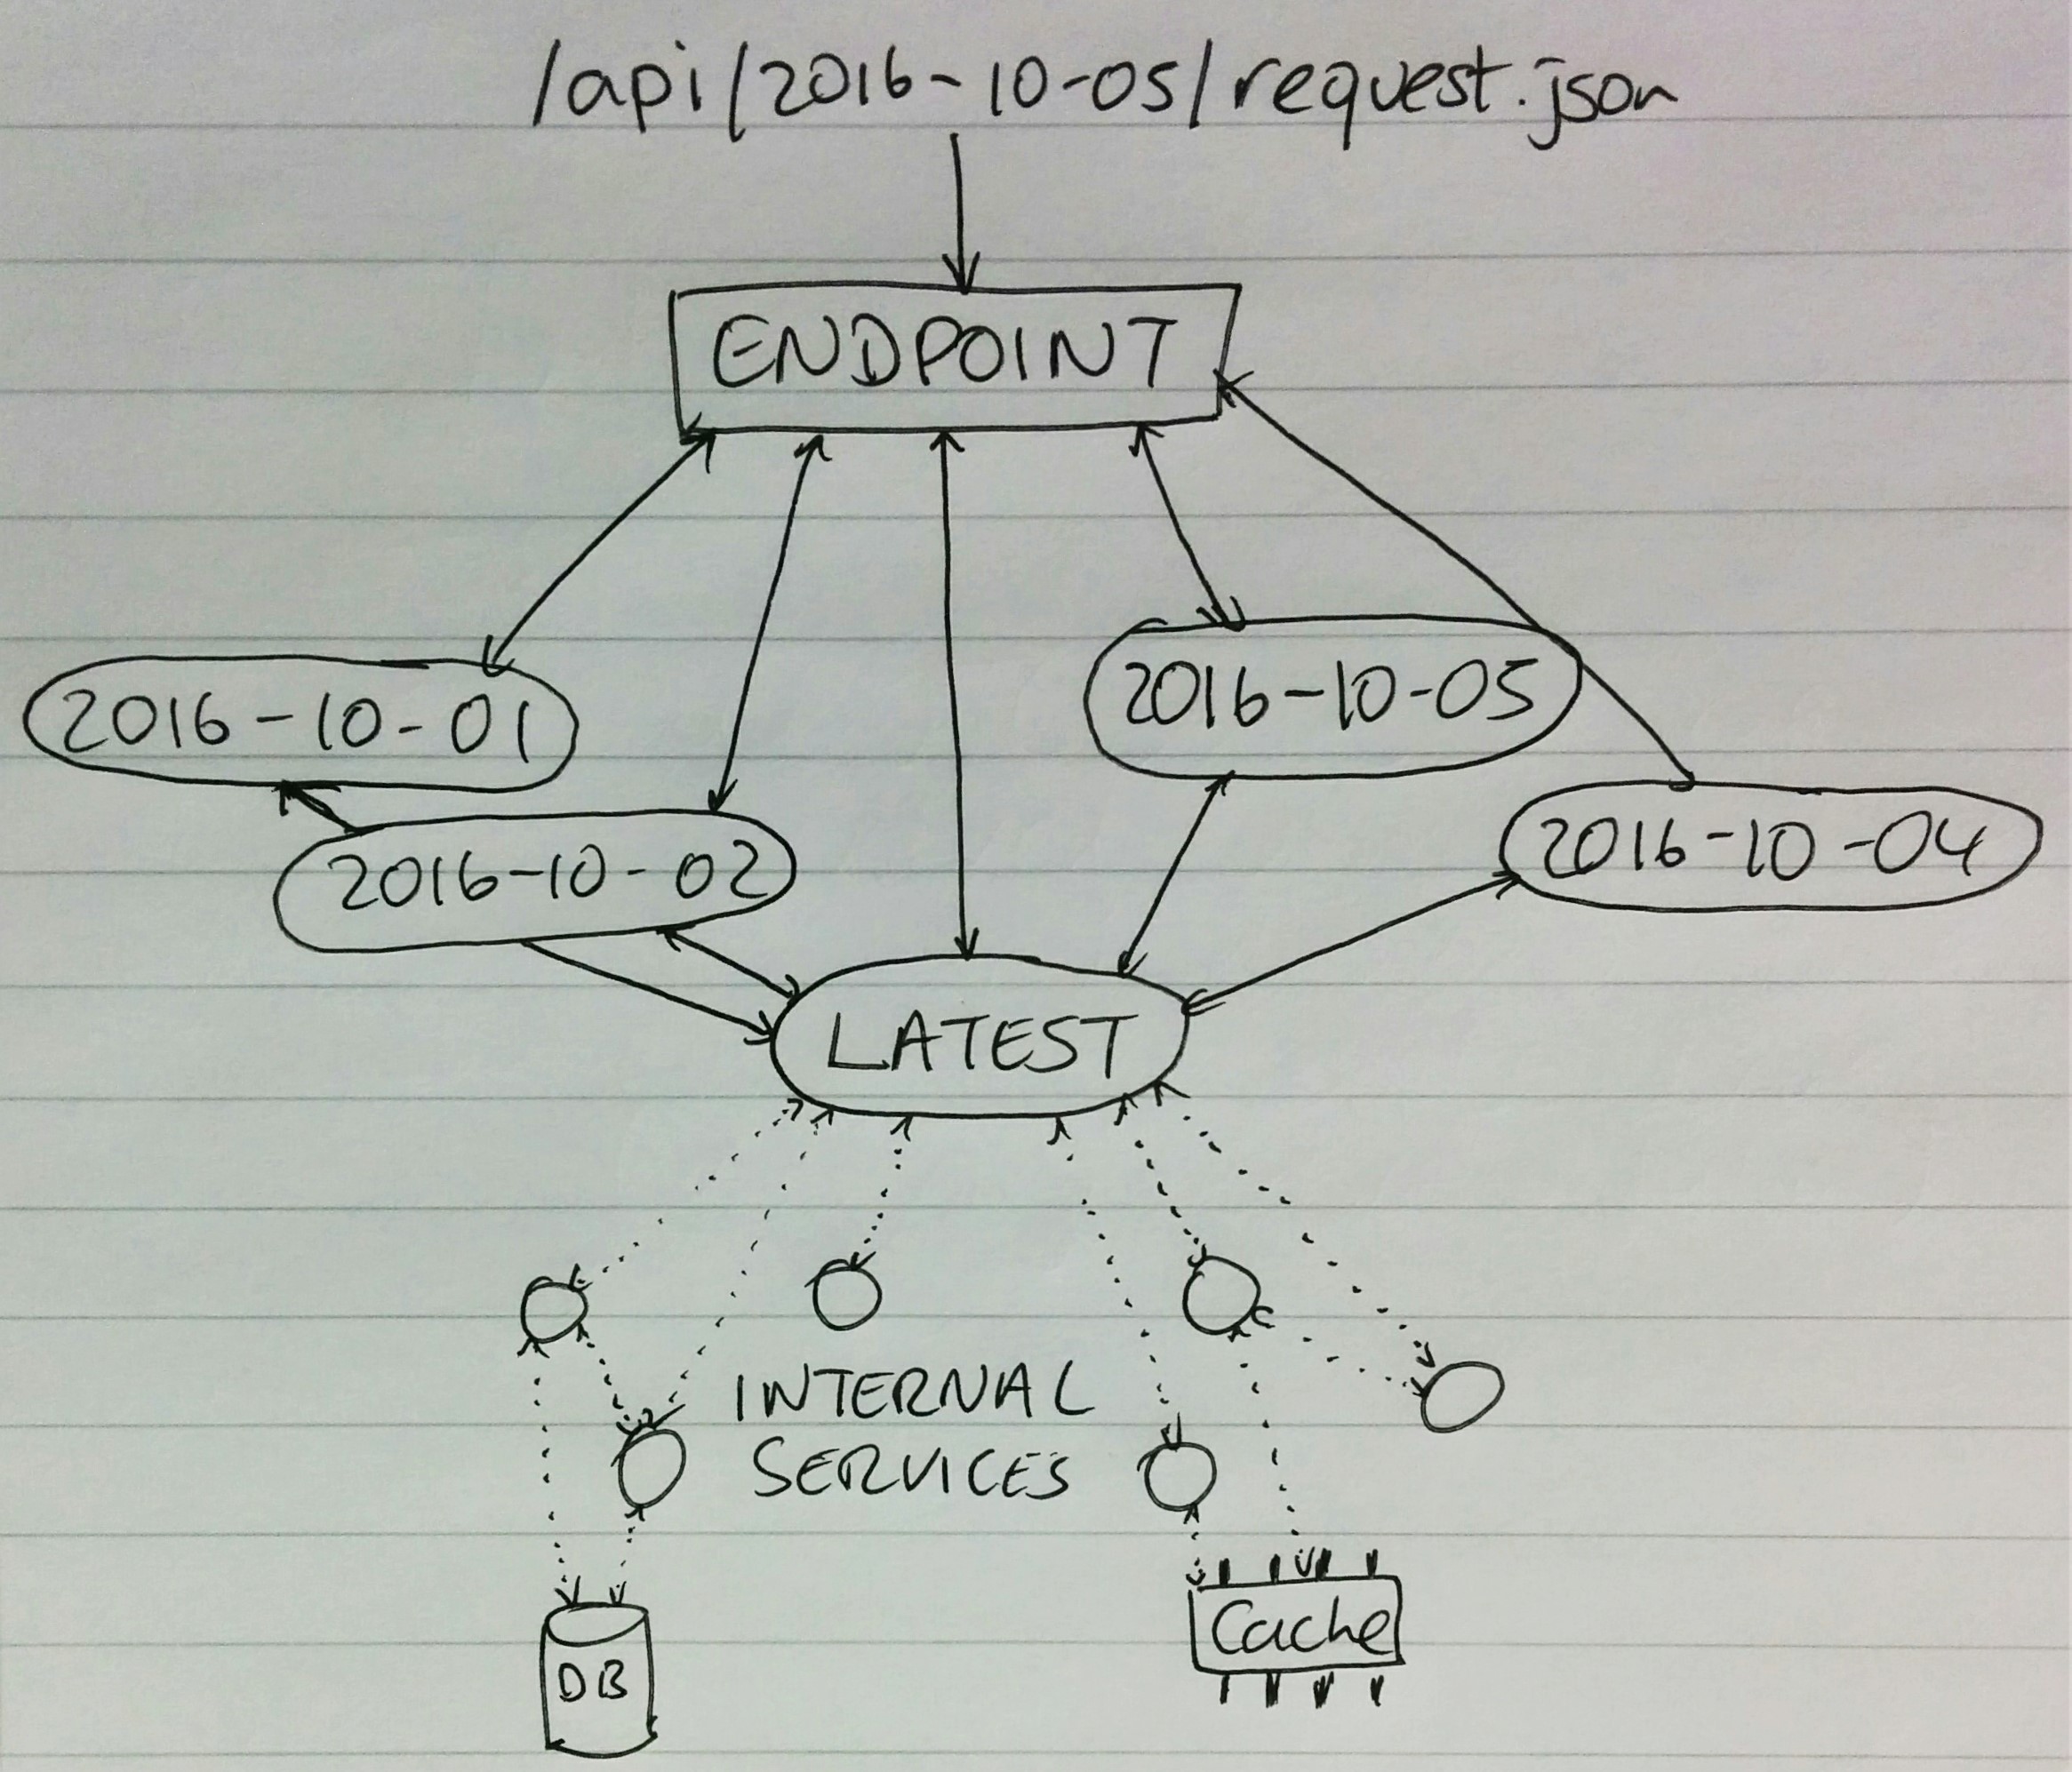 /api/2016-10-05/request.json
ENDPOINT
2016-10-01
2016-10-05
2016-10-02
2016-10-04
LATEST
INTERNAL
SERVICES
Cache
DB